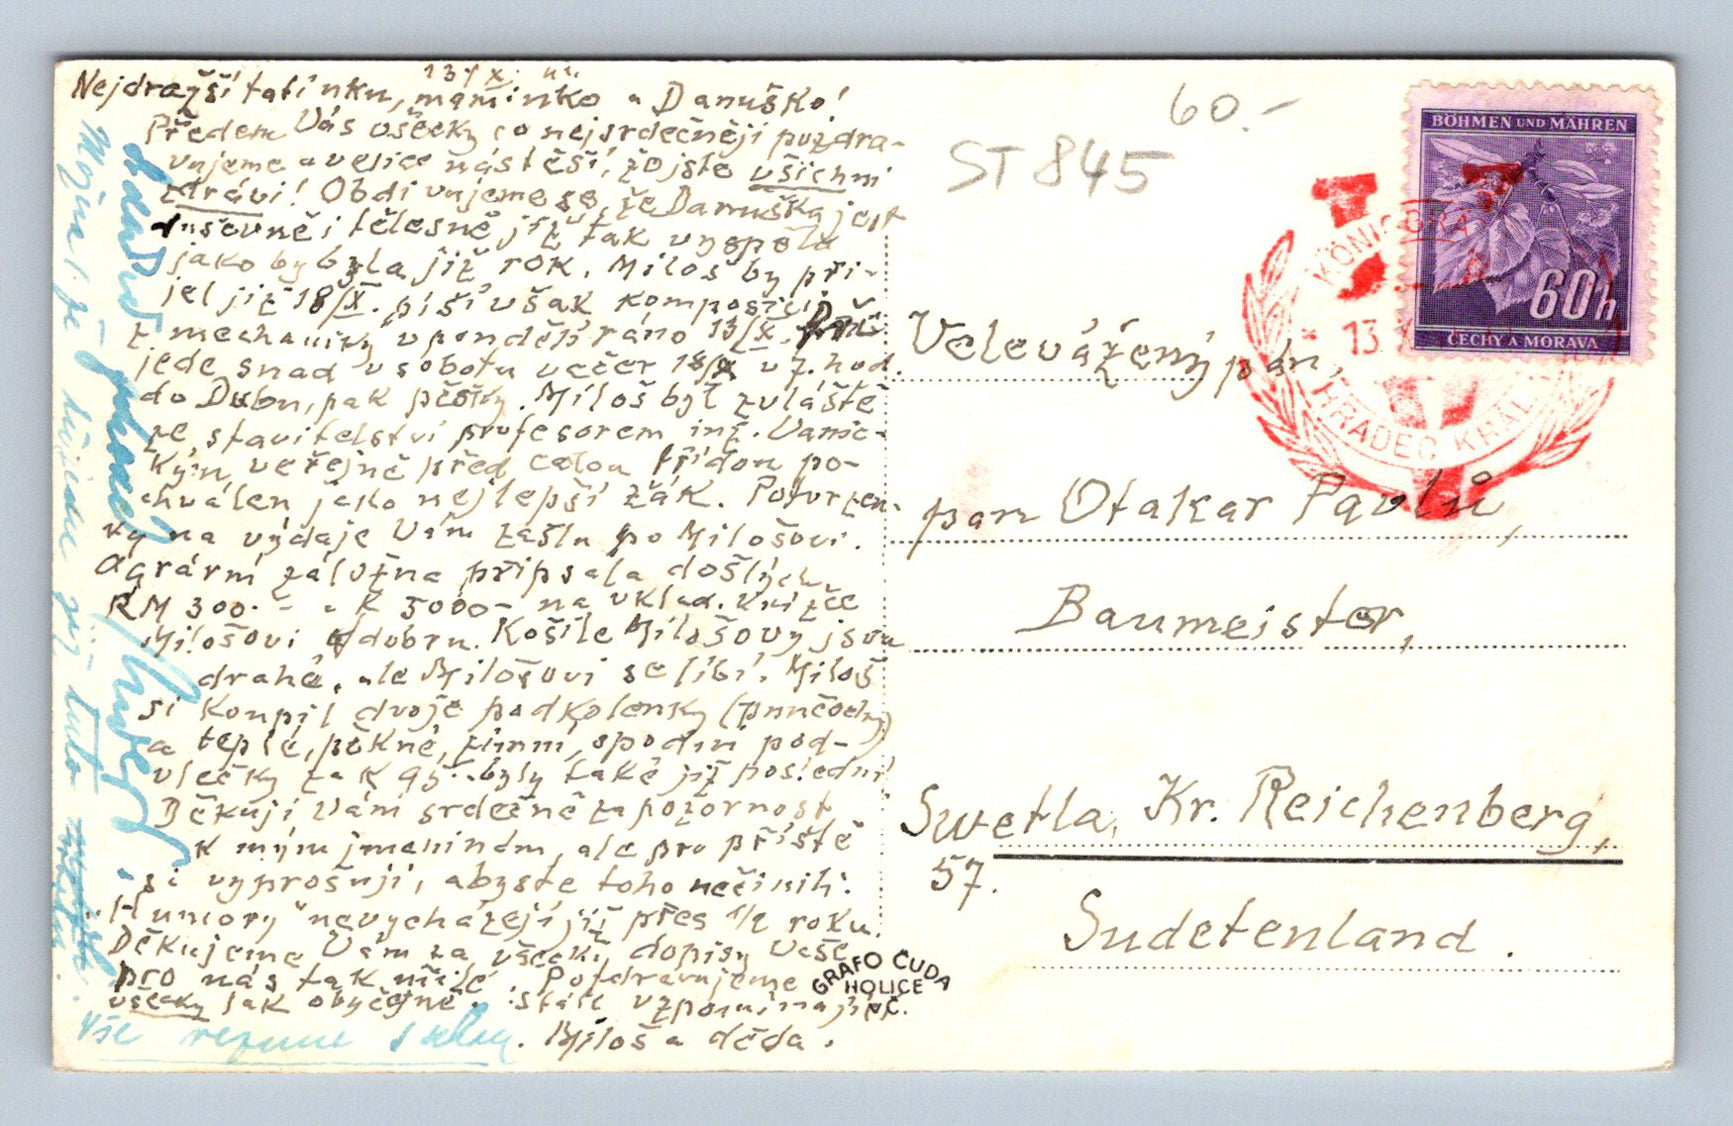 13/X.
Nejdražší tatínku, maminko a Danuško!
Předem Vás všecky co nejsrdečněji pozdra-
vujeme a velice nás těší, že jste všichni
zdrávi! Obdivujeme se, že Danuška jest
duševně i tělesně již tak vyspělá
jako by byla již rok. Miloš by při-
jel již 18/X. píší však komposici
z mechaniky v pondělí ráno 13/X.
jede snad v sobotu večer 18/X v 7. hod.
do Dubu, pak pěšky. Miloš byl zvláště
ze stavitelství profesorem inž. Vanic-
kým, veřejně před celou třídou po-
chválen jako nejlepší žák. Potvrzen-
ky na výdaje Vám zašlu po Milošovi.
Agrární záložna připsala došlých
RM 300.- a K 3000- na vklad. knížce
Milošovi k dobru. Košile Milošovy jsou
drahé, ale Milošovi se líbí. Miloš
si koupil dvoje podkolenky (punčochy)
a teplé, pěkné, zimní, spodní pod-
vlečky za K 95.- byly také již poslední
Děkuji Vám srdečně za pozornost
k mým jmeninám, ale pro příště
si vyprošuji, abyste toho nečinili.
"Humory" nevycházejí již přes 1/2 roku.
Děkujeme Vám za všecky dopisy Vaše
pro nás tak milé. Pozdravujeme
všecky jak obyčejně. stále vzpomínající
Miloš a děda.
Vše
60.-
ST 845
BÖHMEN UND MÄHREN
60h
ČECHY A MORAVA
KÖNIGGRÄ
13.
HRADEC KRÁL
Velevážený pán,
pan Otakar Pavlů,
Baumeister,
Swetla, Kr. Reichenberg,
57.
Sudetenland.
GRAFO ČUDA
HOLICE